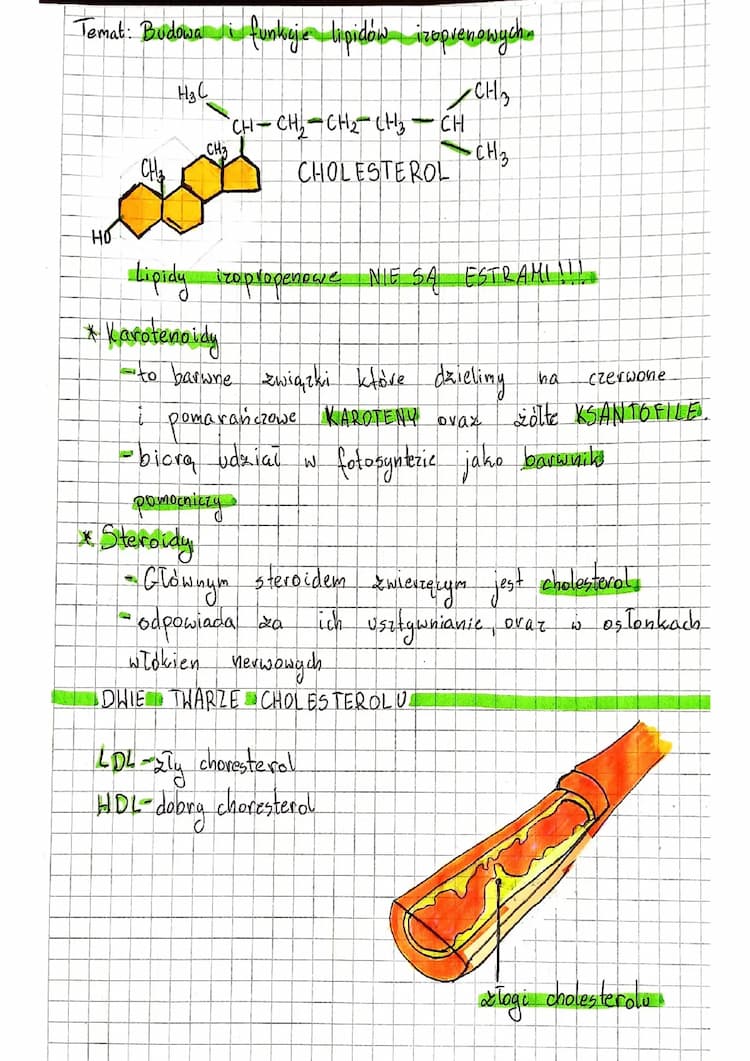 Temat: Budowa i funkcje lipidów izoprenowych.
H3C
CH3
CH-CH2-CH2-CH3-CH
CH3
CH3
CH3
CHOLESTEROL
HO
Lipidy izopropenowe NIE SĄ ESTRAMI!!!
* Karotenoidy
-to barwne związki które dzielimy na czerwone
i pomarańczowe KAROTENY oraz żółte KSANTOFILE.
-biorą udział w fotosyntezie jako barwnik
pomocniczy
* Steroidy
- Głównym steroidem zwierzęcym jest cholesterol.
- odpowiada za ich usztywnianie, oraz w osłonkach
włókien nerwowych
DWIE TWARZE CHOLESTEROLU
LDL-zły choresterol
HDL-dobry choresterol
złogi cholesterolu